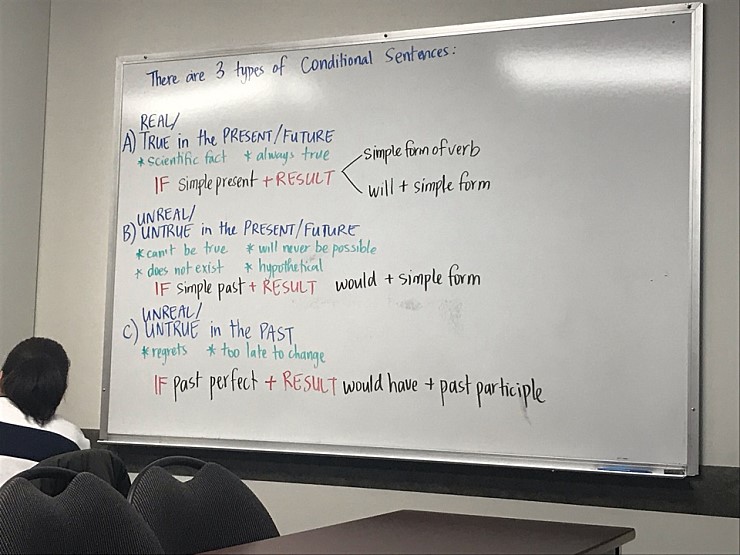 There are 3 types of Conditional Sentences:
REAL/
A) TRUE in the PRESENT/FUTURE
* scientific fact * always true
IF simple present + RESULT
simple form of verb
will + simple form
UNREAL/
B) UNTRUE in the PRESENT/FUTURE
* can't be true * will never be possible
* does not exist * hypothetical
IF simple past + RESULT would + simple form
UNREAL/
C) UNTRUE in the PAST
* regrets * too late to change
IF past perfect + RESULT would have + past participle